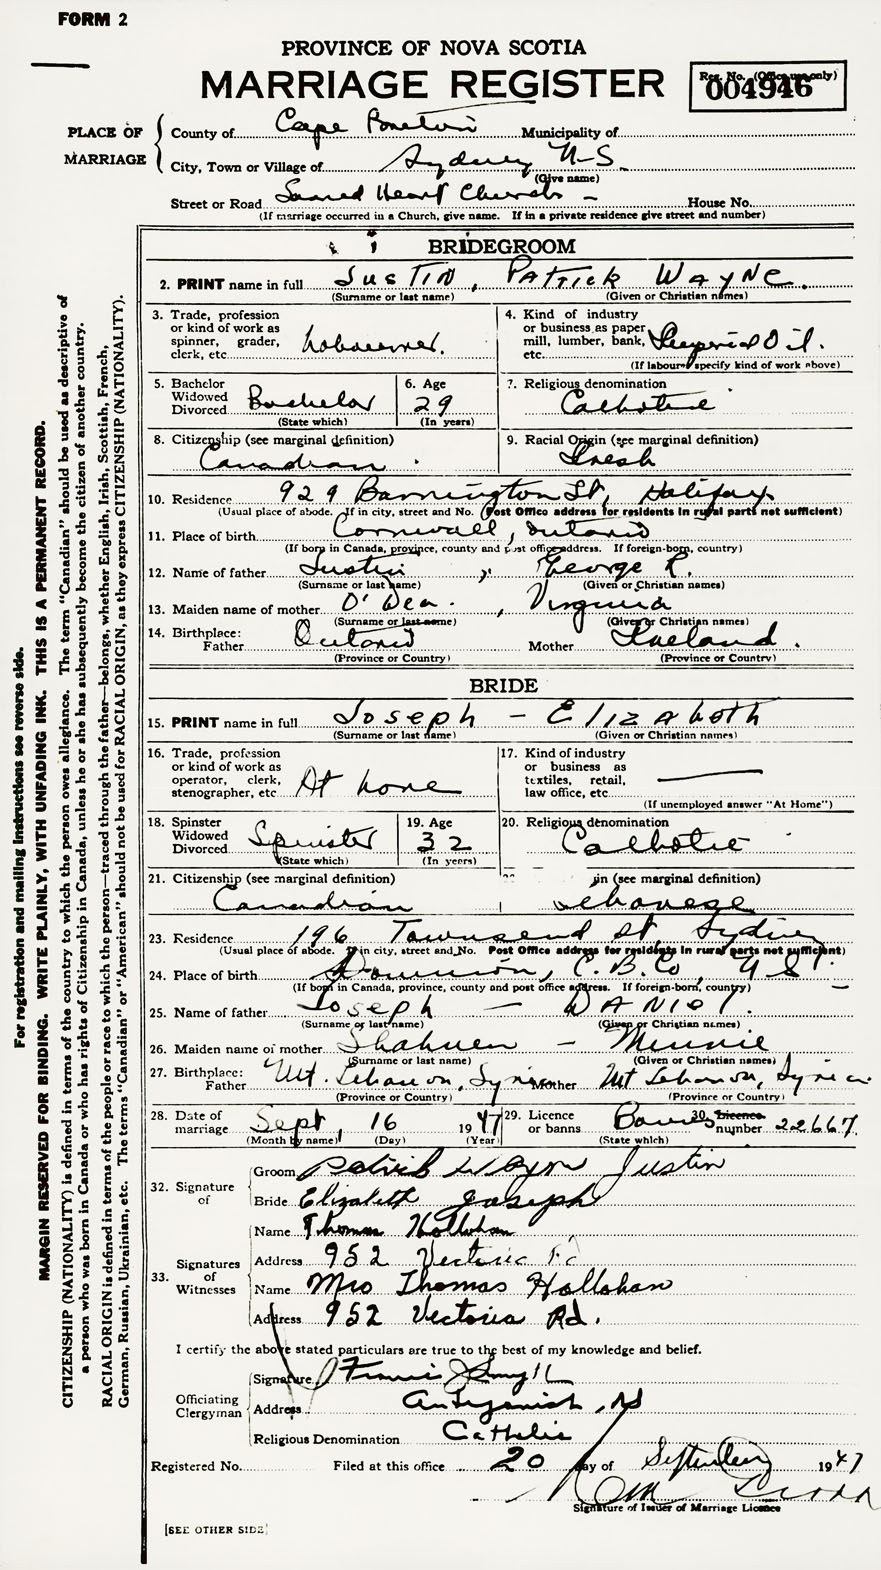 FORM 2
PROVINCE OF NOVA SCOTIA
MARRIAGE REGISTER
Reg. No. (Office use only)
004946
PLACE OF MARRIAGE
County of Cape Breton Municipality of
City, Town or Village of Sydney N-S.
(Give name)
Street or Road Sacred Heart Church - House No.
(If marriage occurred in a Church, give name. If in a private residence give street and number)
BRIDEGROOM
2. PRINT name in full JUSTIN, PATRICK WAYNE.
(Surname or last name) (Given or Christian names)
3. Trade, profession or kind of work as spinner, grader, clerk, etc.
4. Kind of industry or business as paper mill, lumber, bank, etc. Imperial Oil.
(If labourer specify kind of work above)
5. Bachelor Widowed Divorced Bachelor
(State which)
6. Age 29
(In years)
7. Religious denomination Catholic
8. Citizenship (see marginal definition)
Canadian
9. Racial Origin (see marginal definition)
Irish
10. Residence 929 Barrington St, Halifax
(Usual place of abode. If in city, street and No. Post Office address for residents in rural parts not sufficient)
11. Place of birth Cornwall, Ontario
(If born in Canada, province, county and post office address. If foreign-born, country)
12. Name of father Justin, George R.
(Surname or last name) (Given or Christian names)
13. Maiden name of mother O'Dea, Virginia
(Surname or last name) (Given or Christian names)
14. Birthplace: Father Ontario Mother Ireland.
(Province or Country) (Province or Country)
BRIDE
15. PRINT name in full Joseph - Elizabeth
(Surname or last name) (Given or Christian names)
16. Trade, profession or kind of work as operator, clerk, stenographer, etc At home
17. Kind of industry or business as textiles, retail, law office, etc.
(If unemployed answer "At Home")
18. Spinster Widowed Divorced Spinster
(State which)
19. Age 32
(In years)
20. Religious denomination Catholic
21. Citizenship (see marginal definition)
Canadian
in (see marginal definition)
Lebanese
23. Residence 196 Townsend St Sydney
(Usual place of abode. If in city, street and No. Post Office address for residents in rural parts not sufficient)
24. Place of birth Dominion, C.B.Co, N S.
(If born in Canada, province, county and post office address. If foreign-born, country)
25. Name of father Joseph - DANIEL.
(Surname or last name) (Given or Christian names)
26. Maiden name of mother Minnie
(Surname or last name) (Given or Christian names)
27. Birthplace: Father Mt. Lebanon, Syria Mother Mt Lebanon, Syria.
(Province or Country) (Province or Country)
28. Date of marriage Sept, 16 1947
(Month by name) (Day) (Year)
29. Licence or banns Banns
(State which)
30. Licence number 22667
32. Signature of
Groom Patrick Wayne Justin
Bride Elizabeth Joseph
33. Signatures of Witnesses
Name Thomas Hollohan
Address 952 Victoria Rd
Name Mrs Thomas Hollohan
Address 952 Victoria Rd.
I certify the above stated particulars are true to the best of my knowledge and belief.
Officiating Clergyman
Signature Francis J
Address Antigonish, NS
Religious Denomination Catholic
Registered No. Filed at this office 20 day of September 1947
Signature of Issuer of Marriage Licence
[SEE OTHER SIDE]
For registration and mailing instructions see reverse side.
MARGIN RESERVED FOR BINDING. WRITE PLAINLY, WITH UNFADING INK. THIS IS A PERMANENT RECORD.
CITIZENSHIP (NATIONALITY) is defined in terms of the country to which the person owes allegiance. The term "Canadian" should be used as descriptive of
a person who was born in Canada or who has rights of Citizenship in Canada, unless he or she has subsequently become the citizen of another country.
RACIAL ORIGIN is defined in terms of the people or race to which the person—traced through the father—belongs, whether English, Irish, Scottish, French,
German, Russian, Ukrainian, etc. The terms "Canadian" or "American" should not be used for RACIAL ORIGIN, as they express CITIZENSHIP (NATIONALITY).